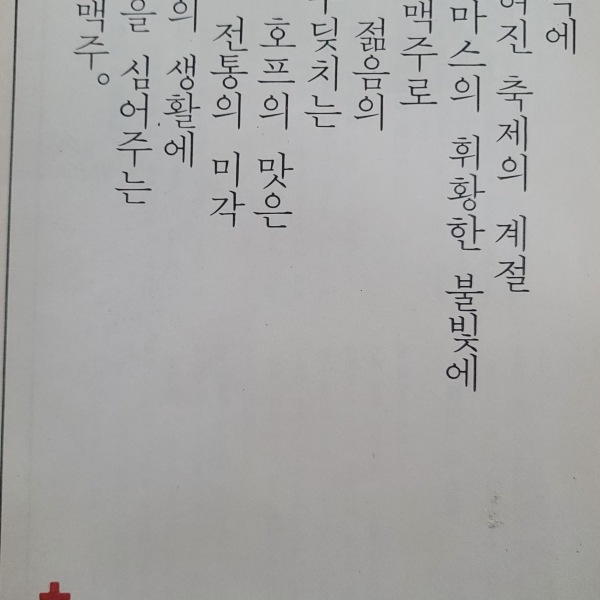 에
진 축제의 계절
마스의 휘황한 불빛에
맥주로
젊음의
딪치는
호프의 맛은
전통의 미각
의 생활에
을 심어주는
맥주。